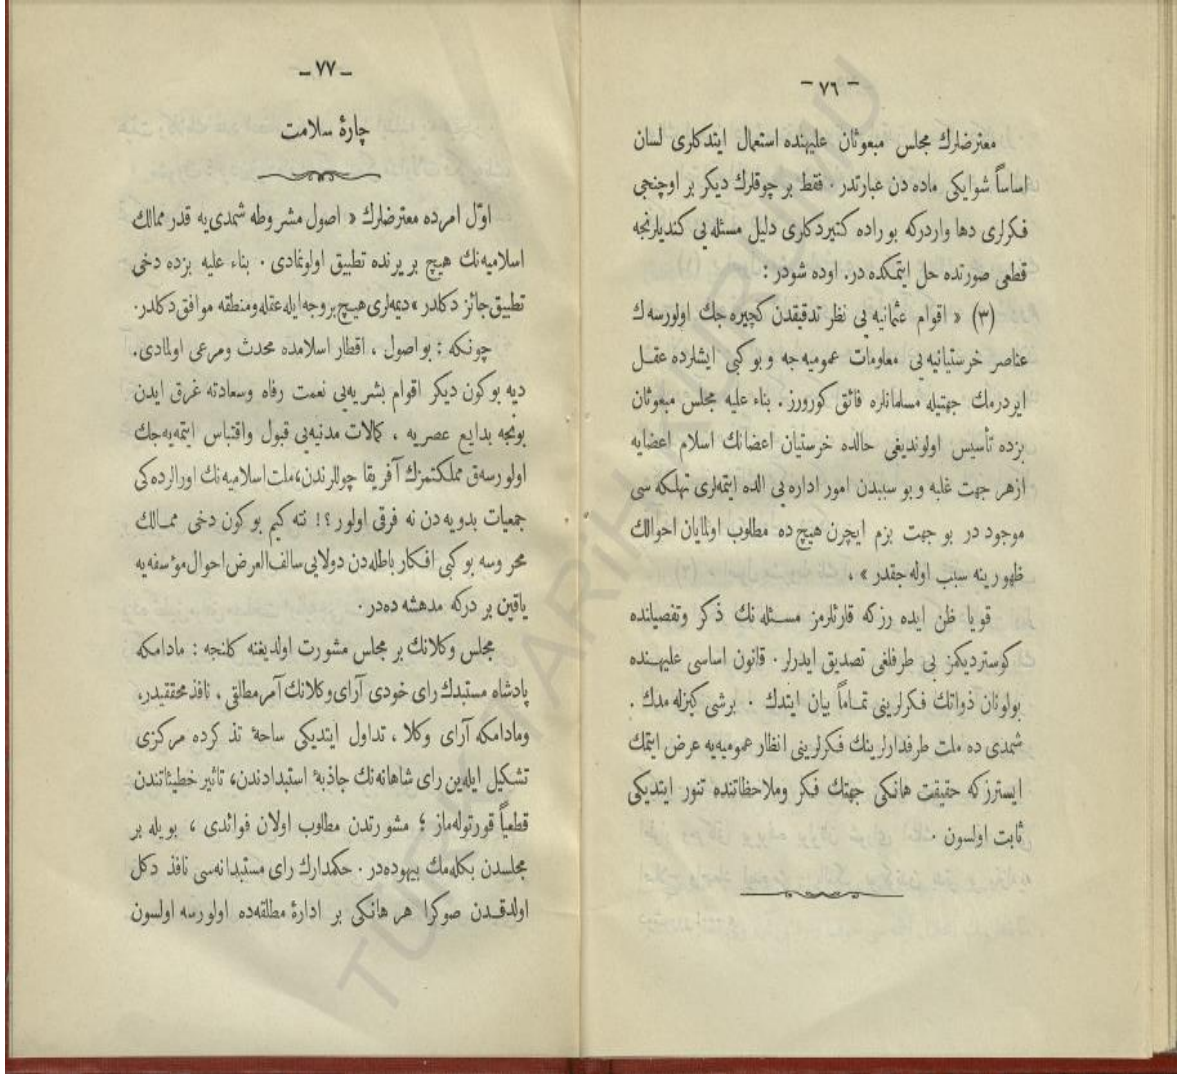 – ٧٦ –
معترضلرك مجلس مبعوثان عليهنده استعمال ايتدكلرى لسان
اساساً شوايكى ماده دن عبارتدر. فقط بر چوقلرك ديكر بر اوچنجى
فكرلرى دها واردركه بوراده كتيردكلرى دليل مسئله يى كنديلرنجه
قطعى صورتده حل ايتمكده در. اوده شودر :
(٣) « اقوام عثمانيه يى نظر تدقيقدن كچيره جك اولورسه ك
عناصر خرستيانيه يى معلومات عموميه جه و بو كبى ايشلرده عقل
ايردرمك جهتيله مسلمانلره فائق كورورز. بناء عليه مجلس مبعوثان
بزده تأسيس اولونديغى حالده خرستيان اعضانك اسلام اعضايه
ازهر جهت غلبه و بو سببدن امور اداره يى الده ايتمه لرى تهلكه سى
موجود در بو جهت بزم ايچرن هيچ ده مطلوب اولمايان احوالك
ظهورينه سبب اوله جقدر » ،
قويا ظن ايده رزكه قارئلرمز مسئله نك ذكر وتفصيلنده
كوسترديكمز بى طرفلغى تصديق ايدرلر. قانون اساسى عليهنده
بولونان ذواتك فكرلرينى تماماً بيان ايتدك . برشى كيزله مدك .
شمدى ده ملت طرفدارلرينك فكرلرينى انظار عموميه يه عرض ايتمك
ايسترزكه حقيقت هانكى جهتك فكر وملاحظاتنده تنور ايتديكى
ثابت اولسون .
– ٧٧ –
چارهٔ سلامت
اوّل امرده معترضلرك « اصول مشروطه شمدى يه قدر ممالك
اسلاميه نك هيچ بر يرنده تطبيق اولونمادى . بناء عليه بزده دخى
تطبيق جائز دكلدر » ديمه لرى هيچ بروجه ايله عقله ومنطقه موافق دكلدر.
چونكه : بو اصول ، اقطار اسلامده محدث ومرعى اولمادى.
ديه بوكون ديكر اقوام بشريه يى نعمت رفاه وسعادته غرق ايدن
بونجه بدايع عصريه ، كمالات مدنيه يى قبول واقتباس ايتمه يه جك
اولورسه ق مملكتمزك آفريقا چوللرندن، ملت اسلاميه نك اورالرده كى
جمعيات بدويه دن نه فرقى اولور ؟! نته كيم بوكون دخى ممالك
محروسه بو كبى افكار باطله دن دولايى سالف العرض احوال مؤسفه يه
ياقين بر دركه مدهشه ده در .
مجلس وكلانك بر مجلس مشورت اولديغنه كلنجه : مادامكه
پادشاه مستبدك راى خودى آراى وكلانك آمر مطلقى ، نافذ محققيدر،
ومادامكه آراى وكلا ، تداول ايتديكى ساحهٔ تذ كرده مركزى
تشكيل ايله ين راى شاهانه نك جاذبهٔ استبدادندن، تاثير خطيئاتندن
قطعياً قورتوله ماز ؛ مشورتدن مطلوب اولان فوائدى ، بويله بر
مجلسدن بكله مك بيهوده در . حكمدارك راى مستبدانه سى نافذ دكل
اولدقدن صوكرا هر هانكى بر ادارهٔ مطلقه ده اولورسه اولسون
TÜRK TARİH KURUMU